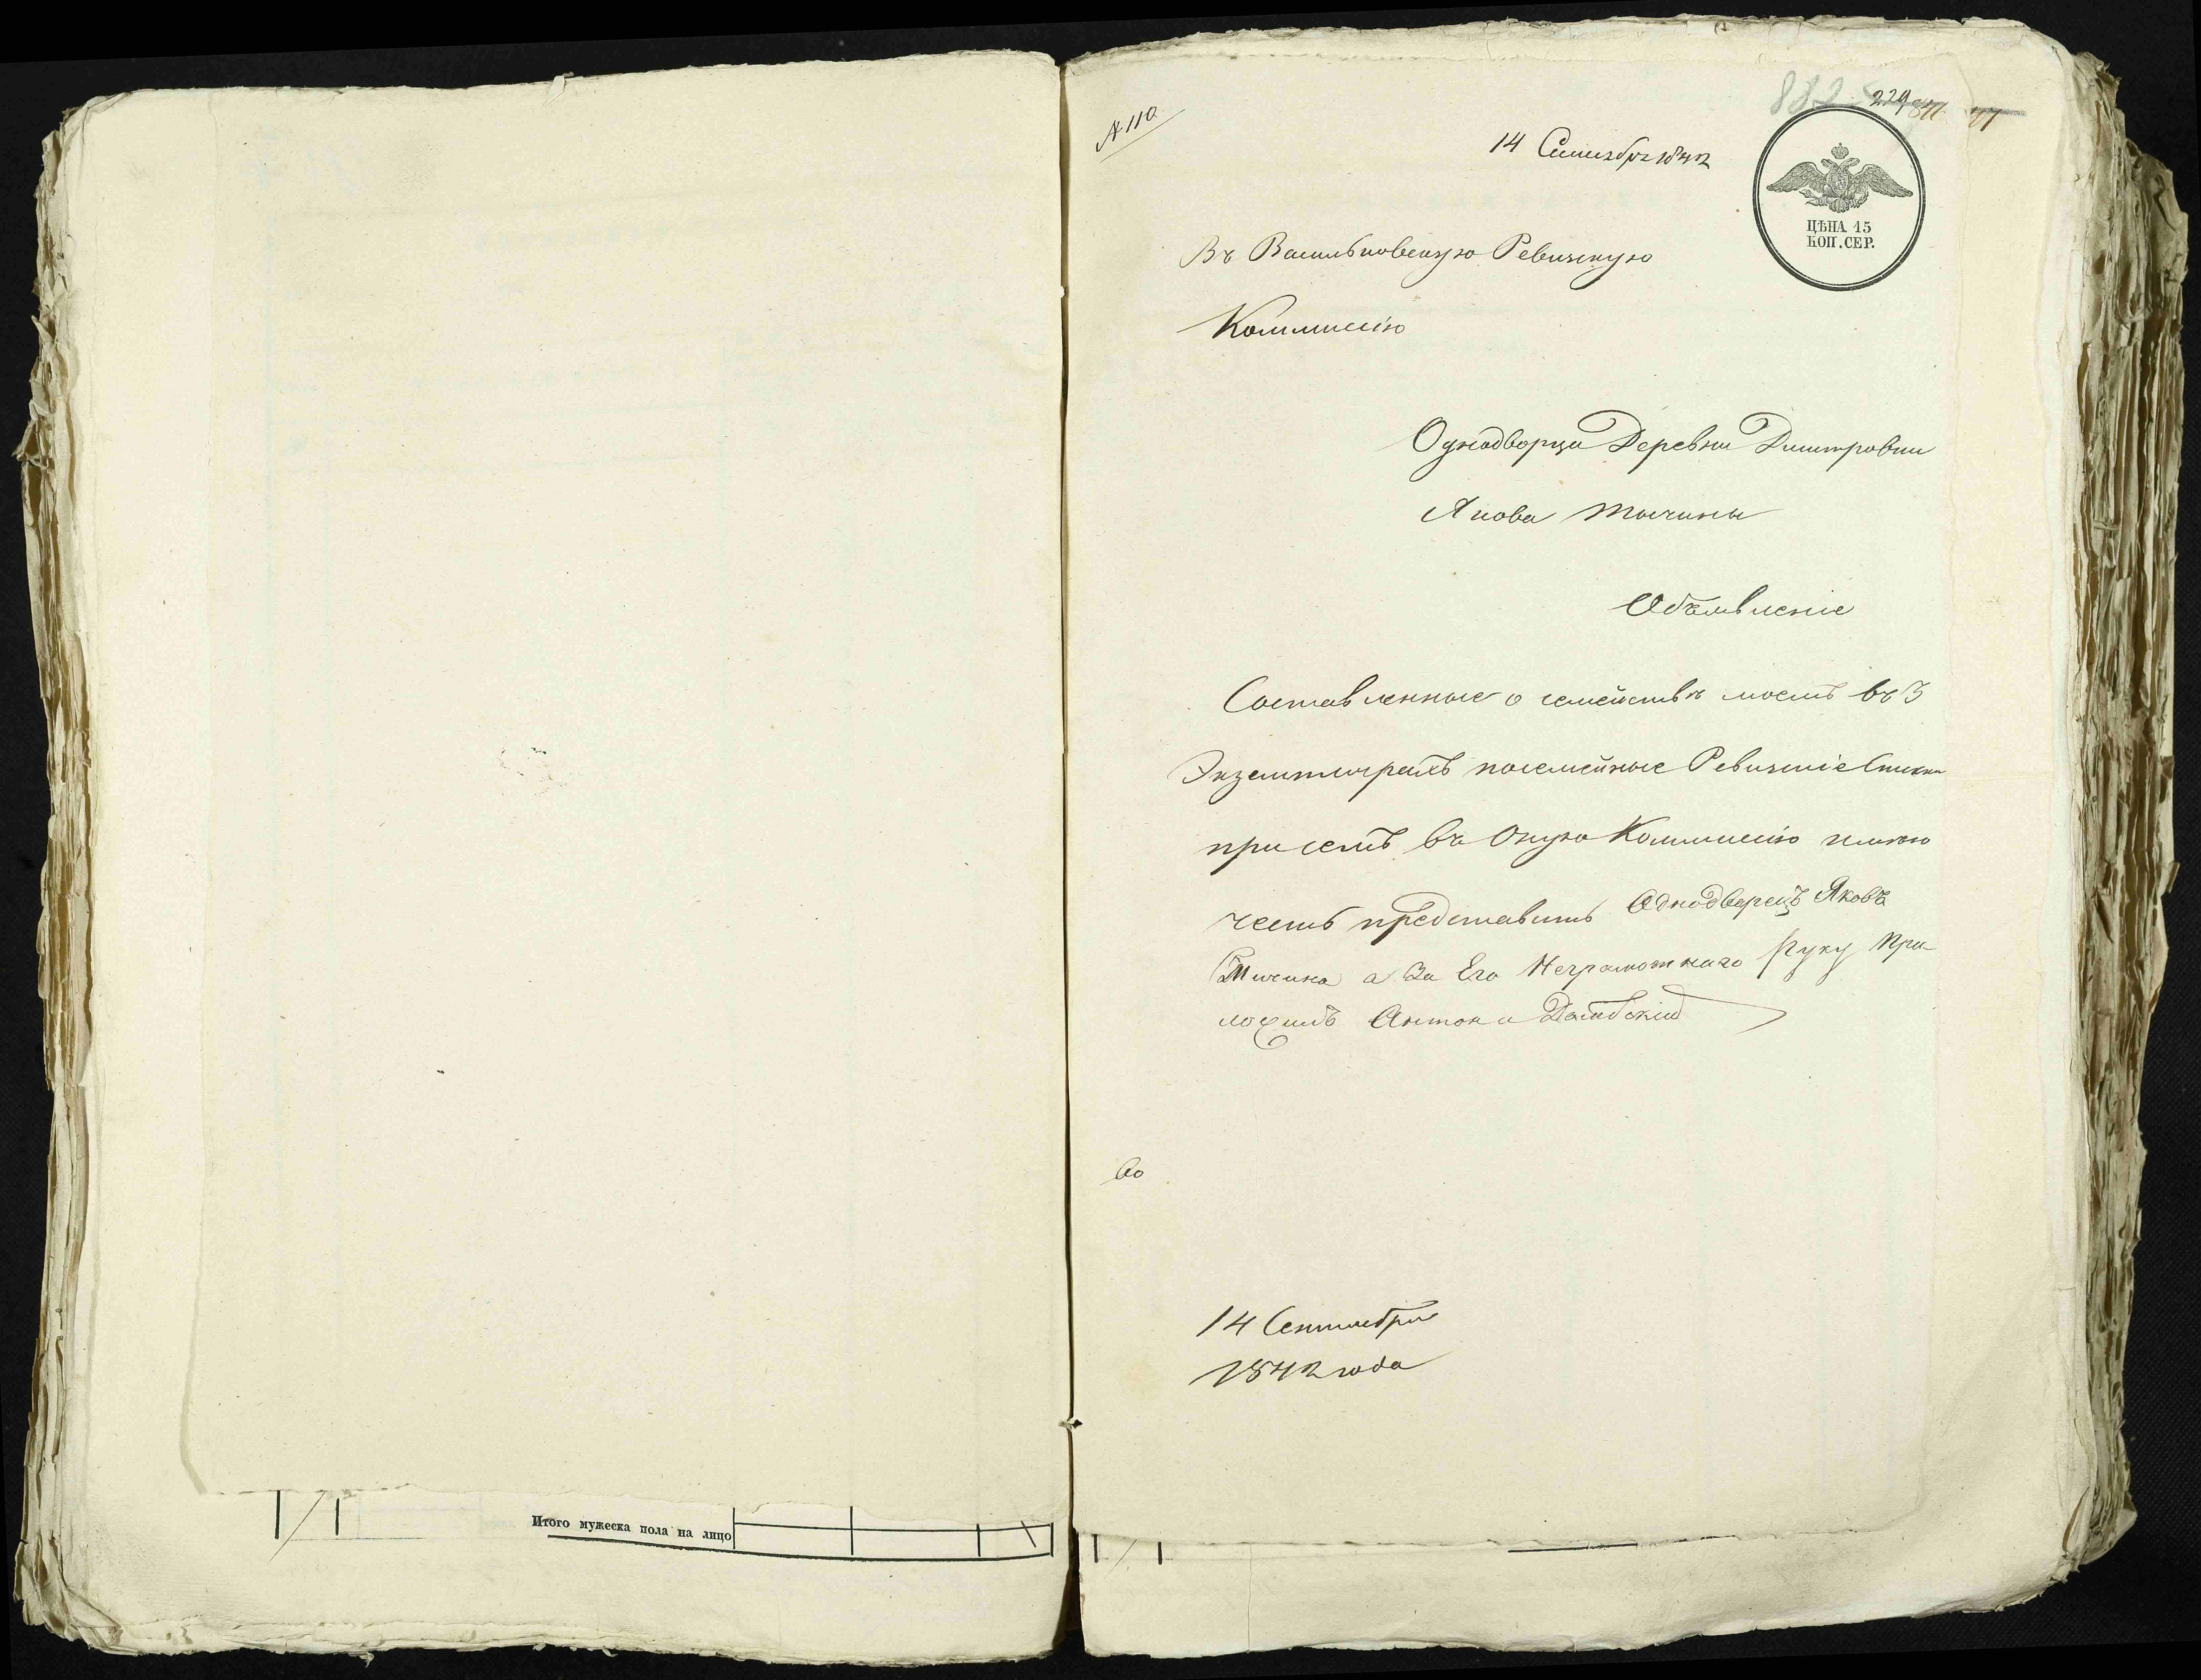 № 110
882 229
14 Сентября 1842
ЦѢНА 15
КОП. СЕР.
Въ Васильковскую Ревизскую
Коммисію
Однодворца Деревни Дмитровки
Якова Тычины
Объявленіе
Составленные о семействѣ моемъ въ 3
Экземплярахъ посемейные Ревизскіе Списки
при семъ въ Оную Коммисію имѣю
честь представить Однодворецъ Яковъ
Тычина а За Его Неграмотнаго Руку При
ложилъ Антонъ
14 Сентября
1842 года
Итого мужеска пола на лицо